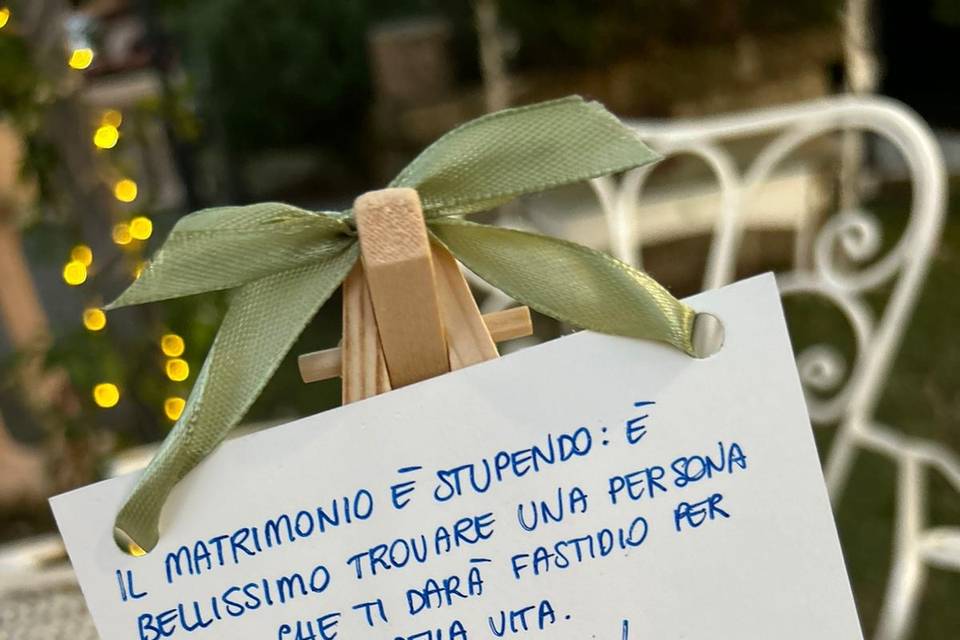 IL MATRIMONIO È STUPENDO: È
BELLISSIMO TROVARE UNA PERSONA
CHE TI DARÀ FASTIDIO PER
VITA.